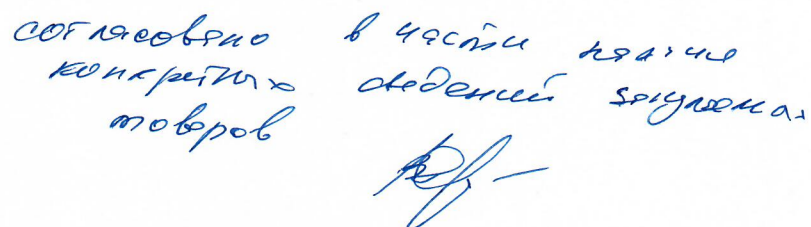 согласовано в части наличия
конкретных сведений закупаемых
товаров